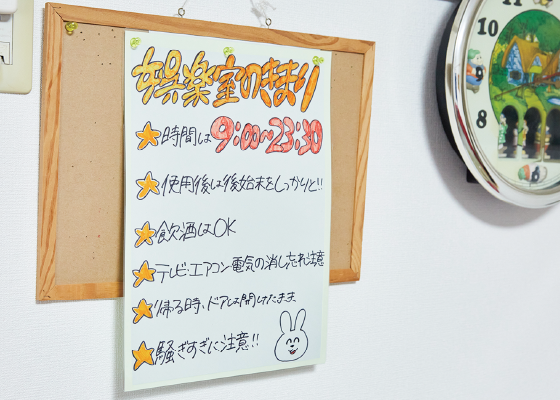 娯楽室のきまり
時間は9:00~23:30
使用後は後始末をしっかりと!!
飲酒はOK
テレビ・エアコン電気の消し忘れ注意
帰る時、ドアは開けたまま
騒ぎすぎに注意!!
10
9
8
7